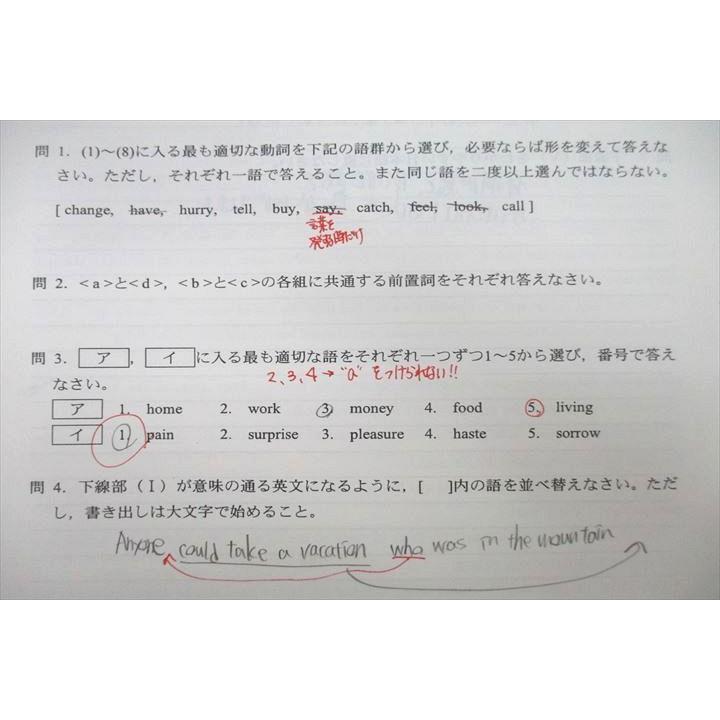 問 1. (1)～(8)に入る最も適切な動詞を下記の語群から選び，必要ならば形を変えて答えな
さい。ただし，それぞれ一語で答えること。また同じ語を二度以上選んではならない。
[ change, have, hurry, tell, buy, say, catch, feel, look, call ]
言葉を
問 2. <a>と<d>，<b>と<c>の各組に共通する前置詞をそれぞれ答えなさい。
問 3. ア , イ に入る最も適切な語をそれぞれ一つずつ1～5から選び，番号で答え
なさい。
2、3、4→"a"をつけられない!!
ア 1. home 2. work 3. money 4. food 5. living
イ 1. pain 2. surprise 3. pleasure 4. haste 5. sorrow
問 4. 下線部（Ⅰ）が意味の通る英文になるように，[ ]内の語を並べ替えなさい。ただ
し，書き出しは大文字で始めること。
Anyone could take a vacation who was in the mountain